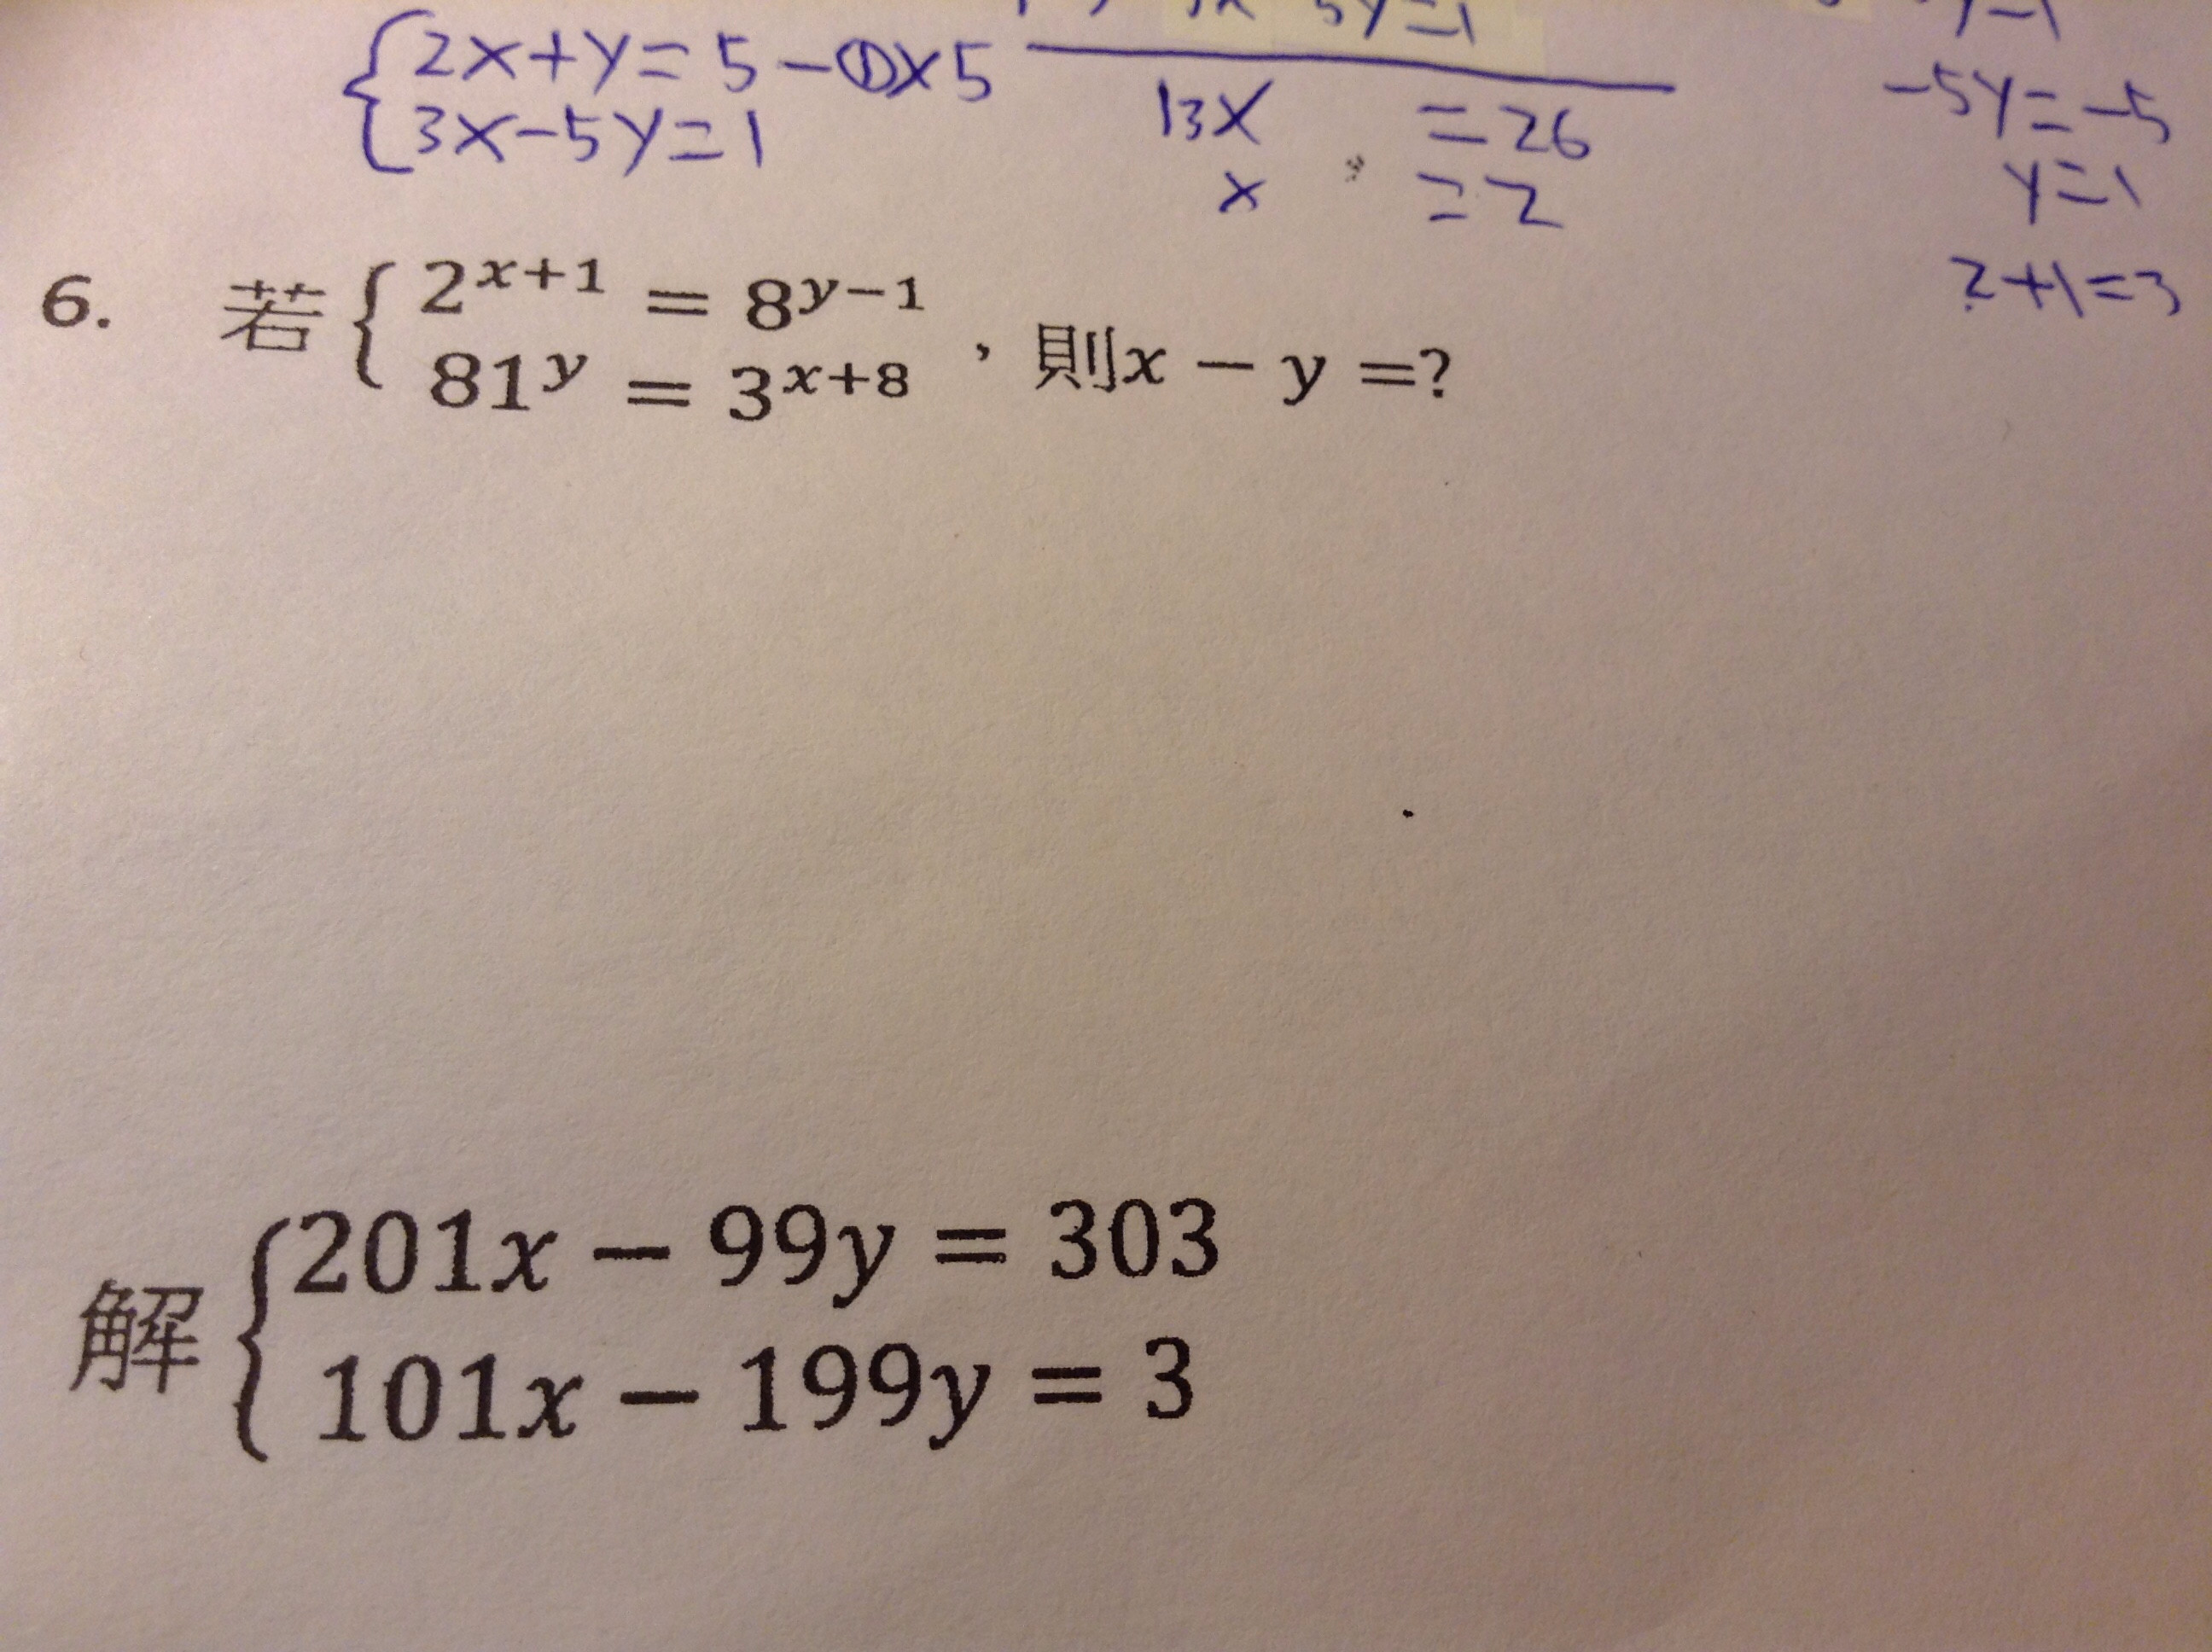 {2x+y=5-①×5
3x-5y=1
5y=1
13x =26
x =2
-5y=-5
y=1
2+1=3
6. 若{2^{x+1} = 8^{y-1}
81^y = 3^{x+8} ，則x − y =?
解{201x − 99y = 303
101x − 199y = 3